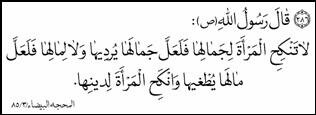 (٢٨٦) قَالَ رَسُولُ اللهِ (ص):
لاتَنْكِحِ الْمَرْأَةَ لِجَمَالِهَا فَلَعَلَّ جَمَالَهَا يُرْدِيهَا وَلَا لِمَالِهَا فَلَعَلَّ
مَالَهَا يُطْغيهَا وَانْكِحِ الْمَرْأَةَ لِدِينِهَا.
المحجه البیضاء/٨٥/٣